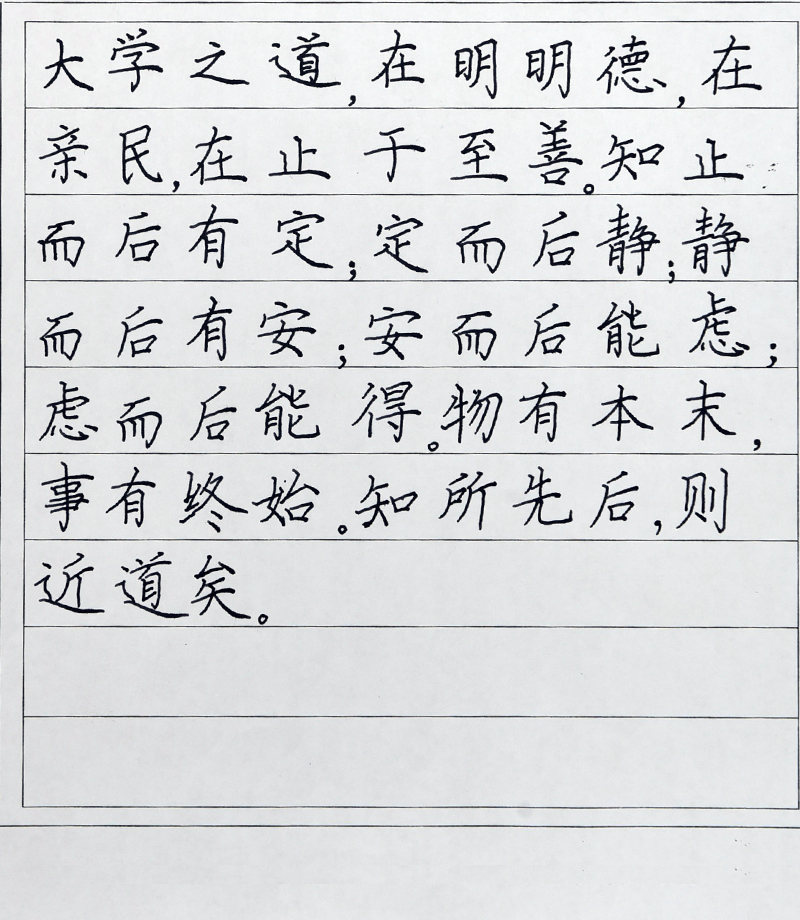 大学之道,在明明德,在
亲民,在止于至善。知止
而后有定;定而后静;静
而后有安;安而后能虑;
虑而后能得。物有本末,
事有终始。知所先后,则
近道矣。